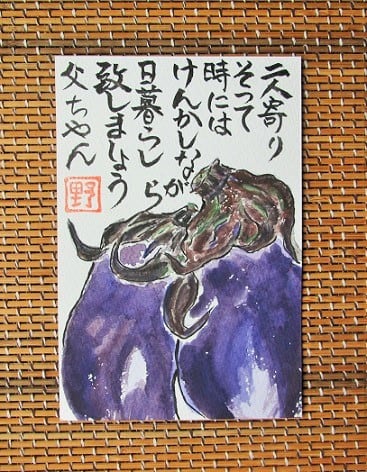 二人寄り
そって
時には
けんかしながら
日暮らし
致しましょう
父ちやん
野